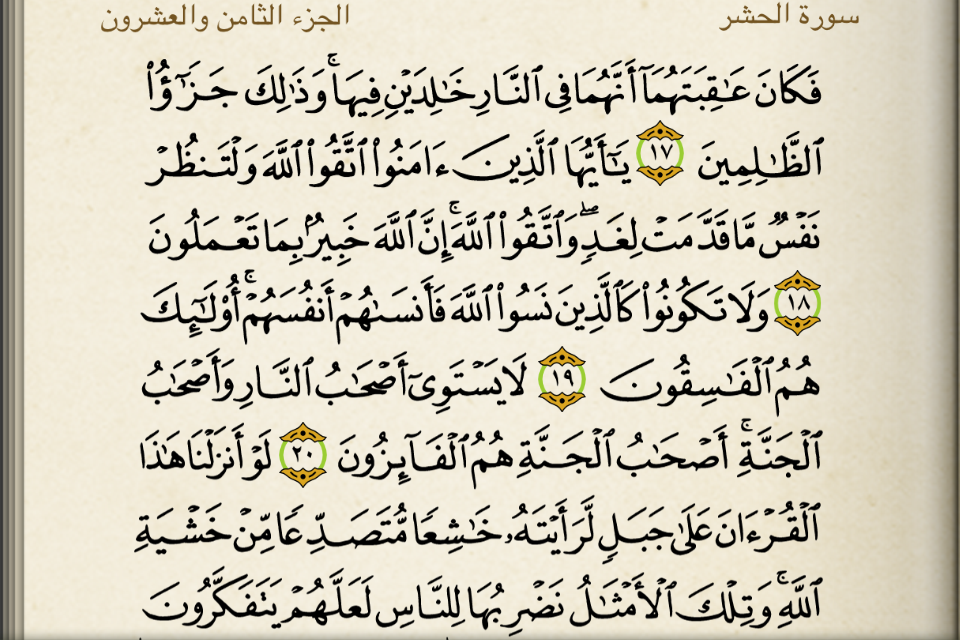 سورة الحشر الجزء الثامن والعشرون
فَكَانَ عَـٰقِبَتَهُمَآ أَنَّهُمَا فِى ٱلنَّارِ خَـٰلِدَيْنِ فِيهَا ۚ وَذَٰلِكَ جَزَٰٓؤُا۟
ٱلظَّـٰلِمِينَ ١٧ يَـٰٓأَيُّهَا ٱلَّذِينَ ءَامَنُوا۟ ٱتَّقُوا۟ ٱللَّهَ وَلْتَنظُرْ
نَفْسٌ مَّا قَدَّمَتْ لِغَدٍ ۖ وَٱتَّقُوا۟ ٱللَّهَ ۚ إِنَّ ٱللَّهَ خَبِيرٌۢ بِمَا تَعْمَلُونَ
١٨ وَلَا تَكُونُوا۟ كَٱلَّذِينَ نَسُوا۟ ٱللَّهَ فَأَنسَىٰهُمْ أَنفُسَهُمْ ۚ أُو۟لَـٰٓئِكَ
هُمُ ٱلْفَـٰسِقُونَ ١٩ لَا يَسْتَوِىٓ أَصْحَـٰبُ ٱلنَّارِ وَأَصْحَـٰبُ
ٱلْجَنَّةِ ۚ أَصْحَـٰبُ ٱلْجَنَّةِ هُمُ ٱلْفَآئِزُونَ ٢٠ لَوْ أَنزَلْنَا هَـٰذَا
ٱلْقُرْءَانَ عَلَىٰ جَبَلٍ لَّرَأَيْتَهُۥ خَـٰشِعًا مُّتَصَدِّعًا مِّنْ خَشْيَةِ
ٱللَّهِ ۚ وَتِلْكَ ٱلْأَمْثَـٰلُ نَضْرِبُهَا لِلنَّاسِ لَعَلَّهُمْ يَتَفَكَّرُونَ